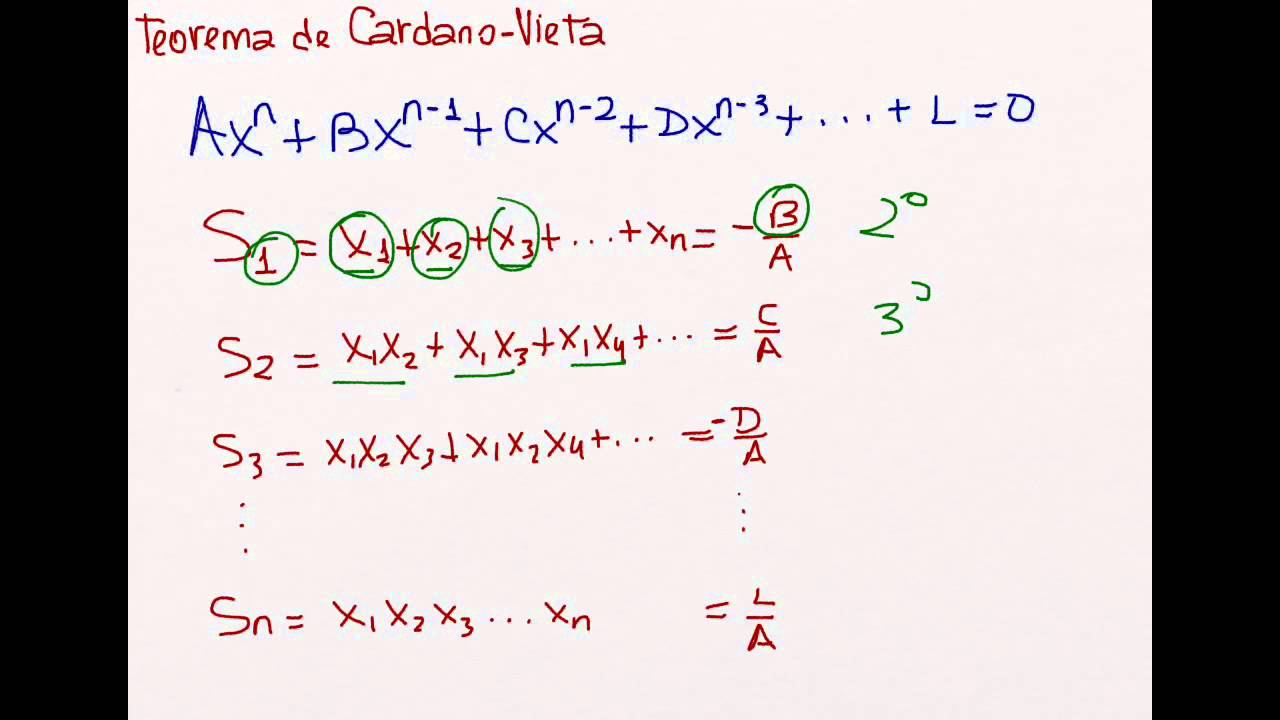 Teorema de Cardano-Vieta
Axⁿ + Bxⁿ⁻¹ + Cxⁿ⁻² + Dxⁿ⁻³ + ... + L = 0
S₁ = x₁ + x₂ + x₃ + ... + xₙ = - B/A 2°
3°
S₂ = x₁x₂ + x₁x₃ + x₁x₄ + ... = C/A
S₃ = x₁x₂x₃ + x₁x₂x₄ + ... = - D/A
⋮ ⋮
Sₙ = x₁x₂x₃...xₙ = L/A